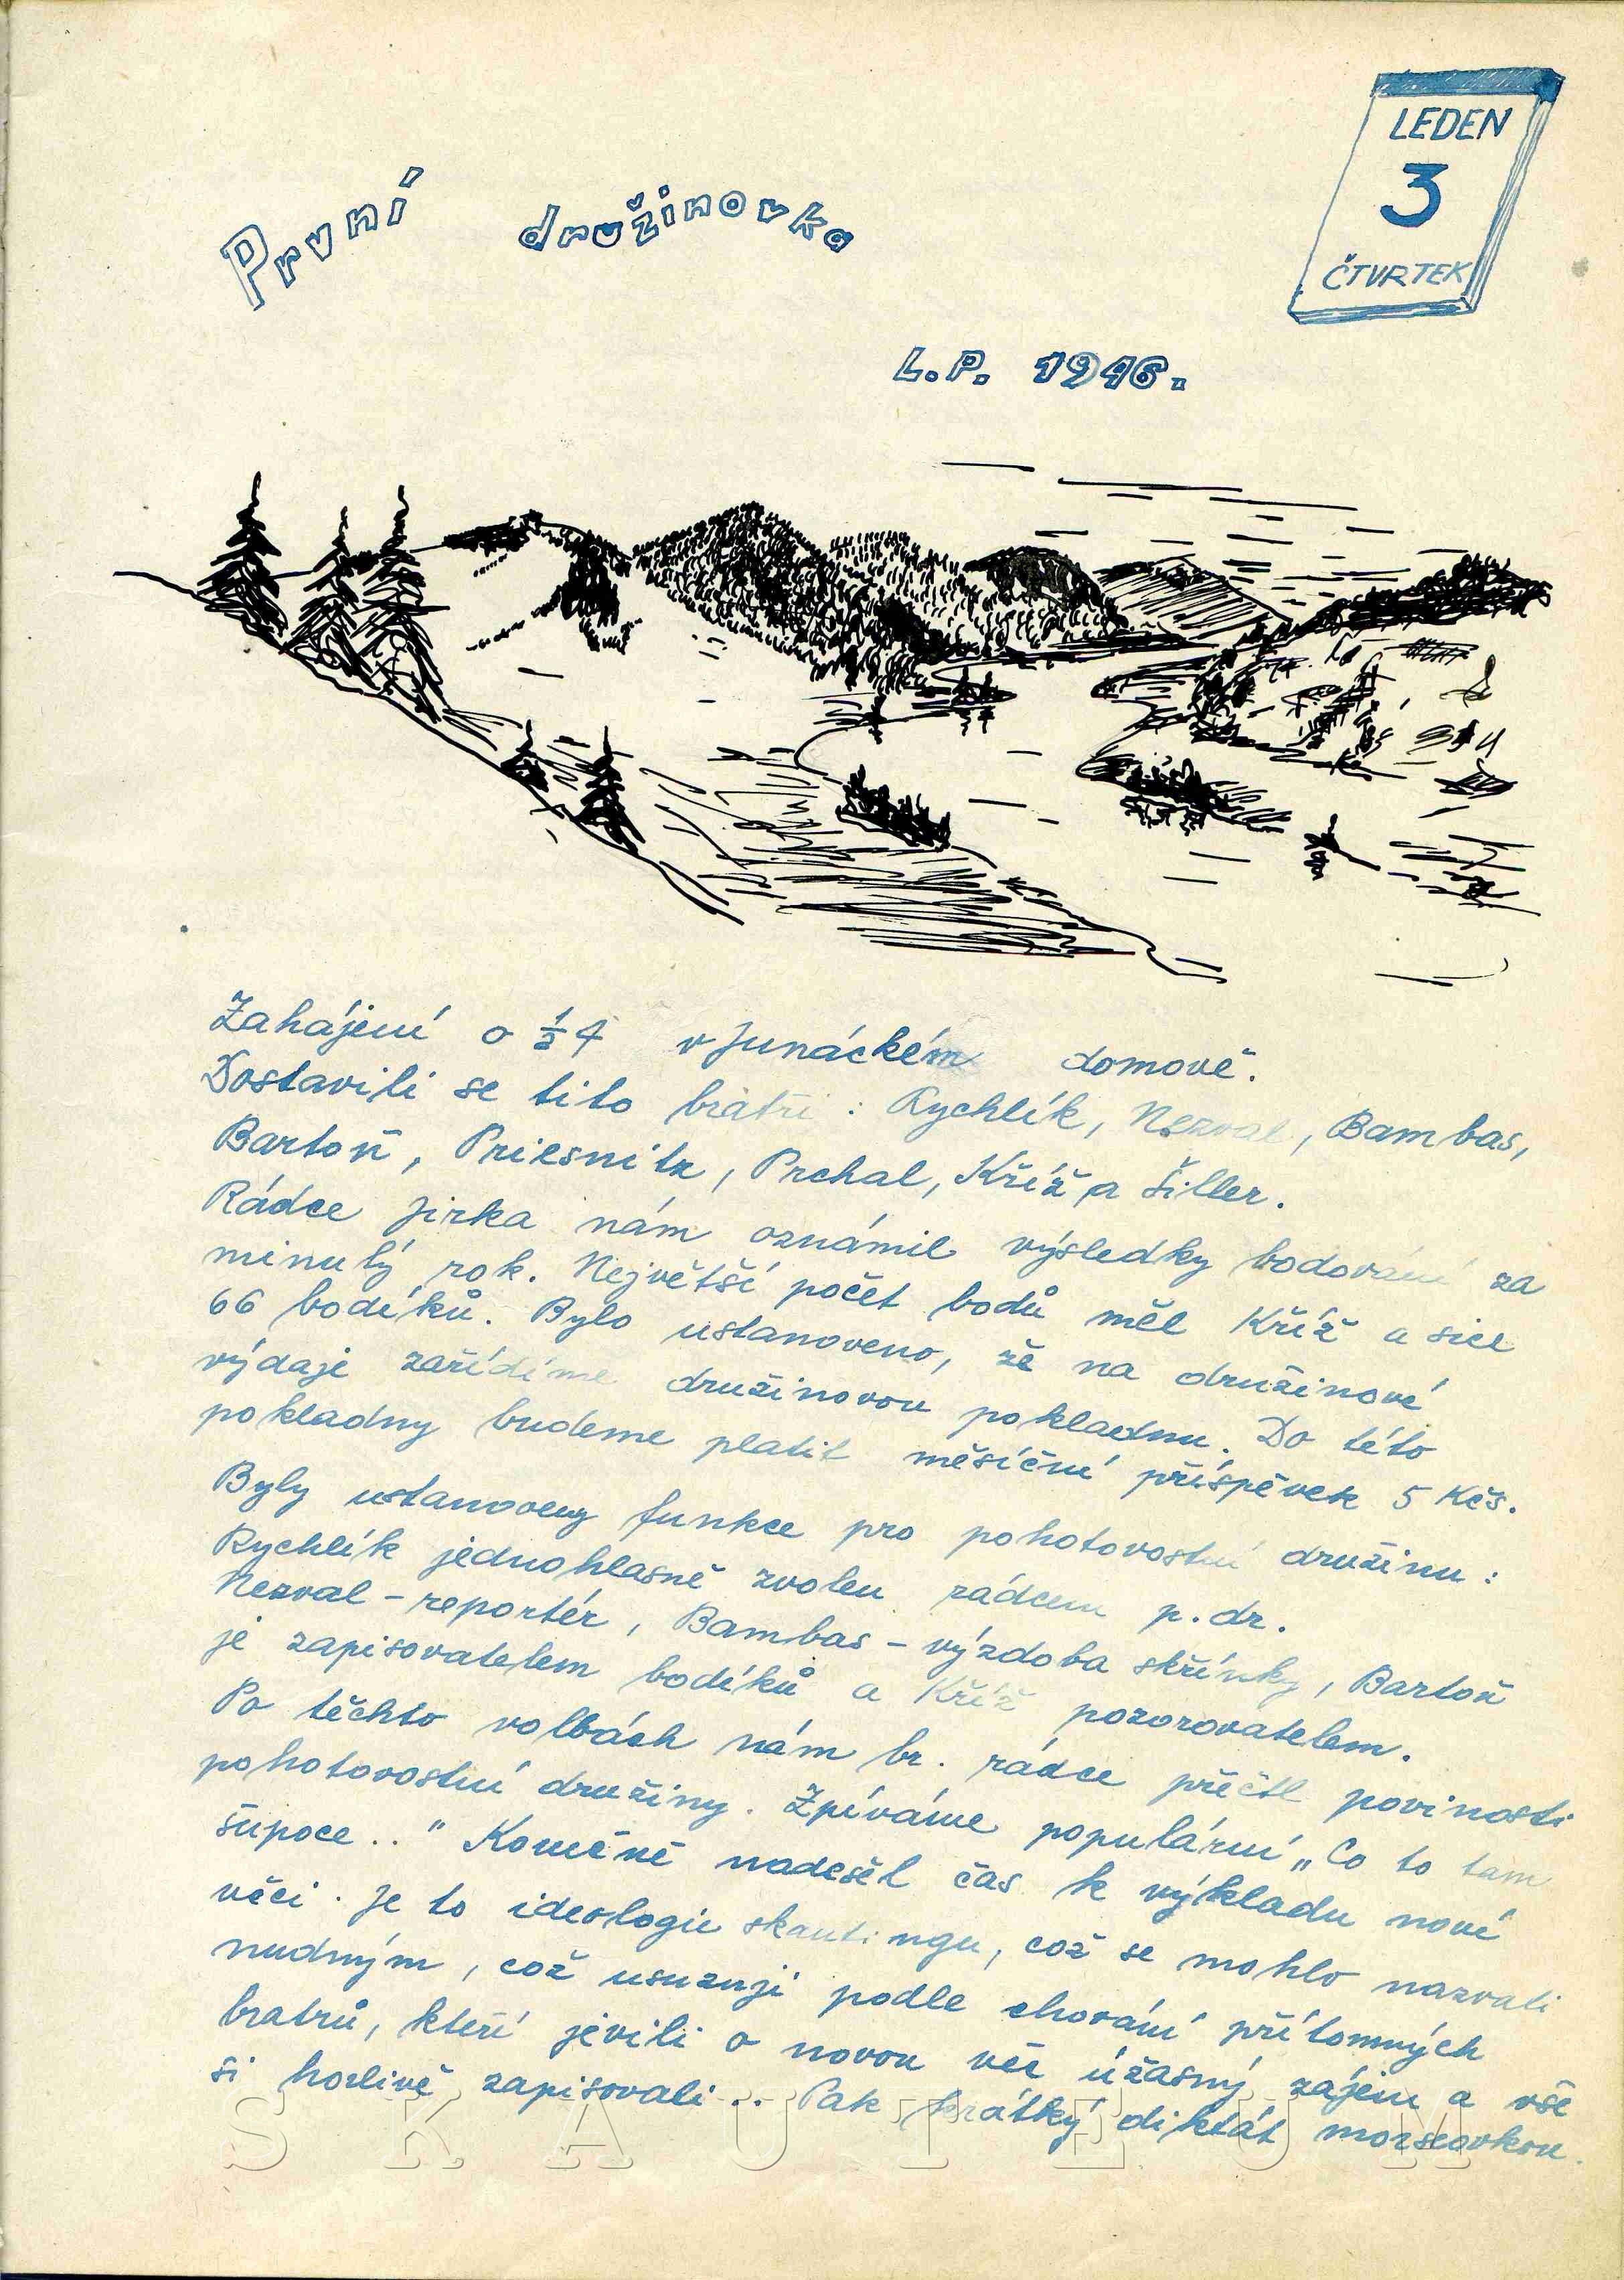 LEDEN
3
ČTVRTEK
První družinovka
L.P. 1946.
Zahájení o ½4 v Junáckém domově.
Dostavili se tito bratři : Rychlík, Nezval, Bambas,
Bartoň, Priesnitz, Prchal, Kříž a Šiller.
Rádce Jirka nám oznámil výsledky bodování za
minulý rok. Největší počet bodů měl Kříž a sice
66 bodíků. Bylo ustanoveno, že na družinové
výdaje zařídíme družinovou pokladnu. Do této
pokladny budeme platit měsíční příspěvek 5 Kčs.
Byly ustanoveny funkce pro pohotovostní družinu :
Rychlík jednohlasně zvolen rádcem p. dr.
Nezval - reportér, Bambas - výzdoba skřínky, Bartoň
je zapisovatelem bodíků a Kříž pozorovatelem.
Po těchto volbách nám br. rádce přečtl povinosti
pohotovostní družiny. Zpíváme populární „Co to tam
šupoce.." Konečně nadešel čas k výkladu nové
věci. Je to ideologie skautingu, což se mohlo nazvati
nudným, což usuzuji podle chování přítomných
bratrů, kteří jevili o novou věc úžasný zájem a vše
si horlivě zapisovali... Pak krátký diktát morseovkou.
SKAUTEUM